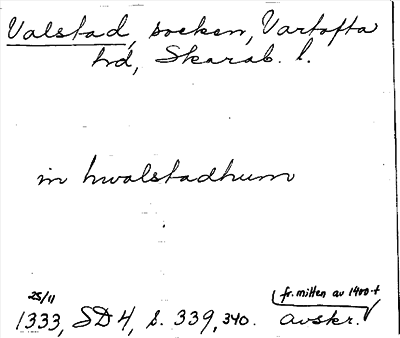 Valstad, socken, Vartofta
hd, Skarab. l.
in hwalstadhum
25/11
fr. mitten av 1400-t
1333, SD 4, s. 339, 340. avskr.